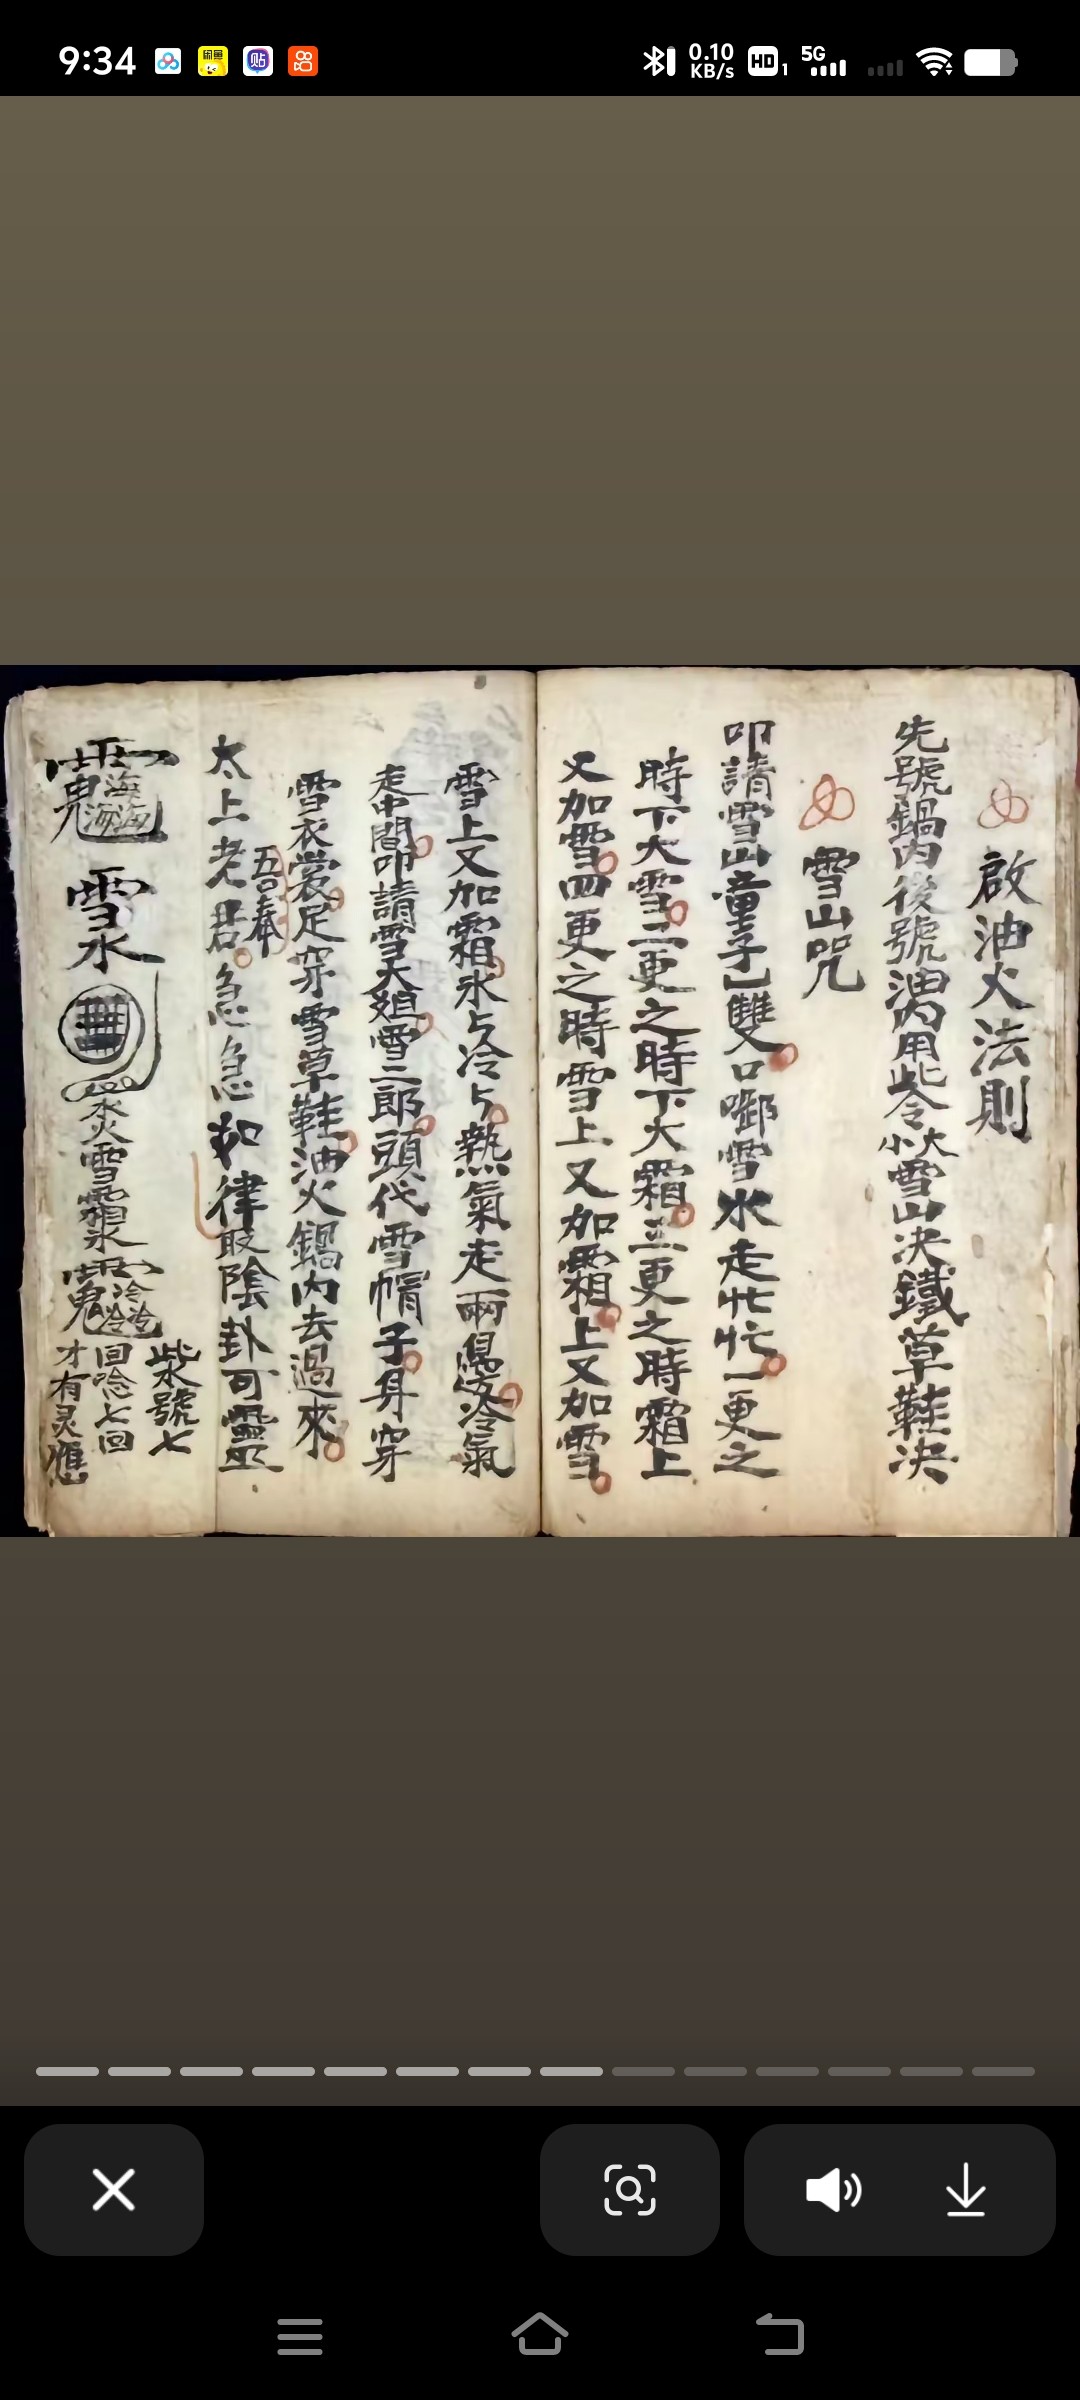 9:34
闲鱼
贴
0.10
KB/s
HD 1
5G
啟油火法則
先號鍋內後號油內用此令大小雪山決鐵草鞋決
雪山咒
叩請雪山童子乚雙人口啣雪水走忙忙一更之
時下大雪二更之時下大霜三更之時霜上
又加雪四更之時雪上又加霜上又加雪
雪上又加霜氷与冷与熱氣走兩邊冷氣
走中間叩請雪大姐雪二郎頭代雪帽子身穿
雪衣裳足穿雪草鞋油火鍋內去過來
吾奉
太上老君急急如律取陰卦可靈
海海海
雪水
雪霜氷
冷冷冷
號七
回唸七回
才有灵應